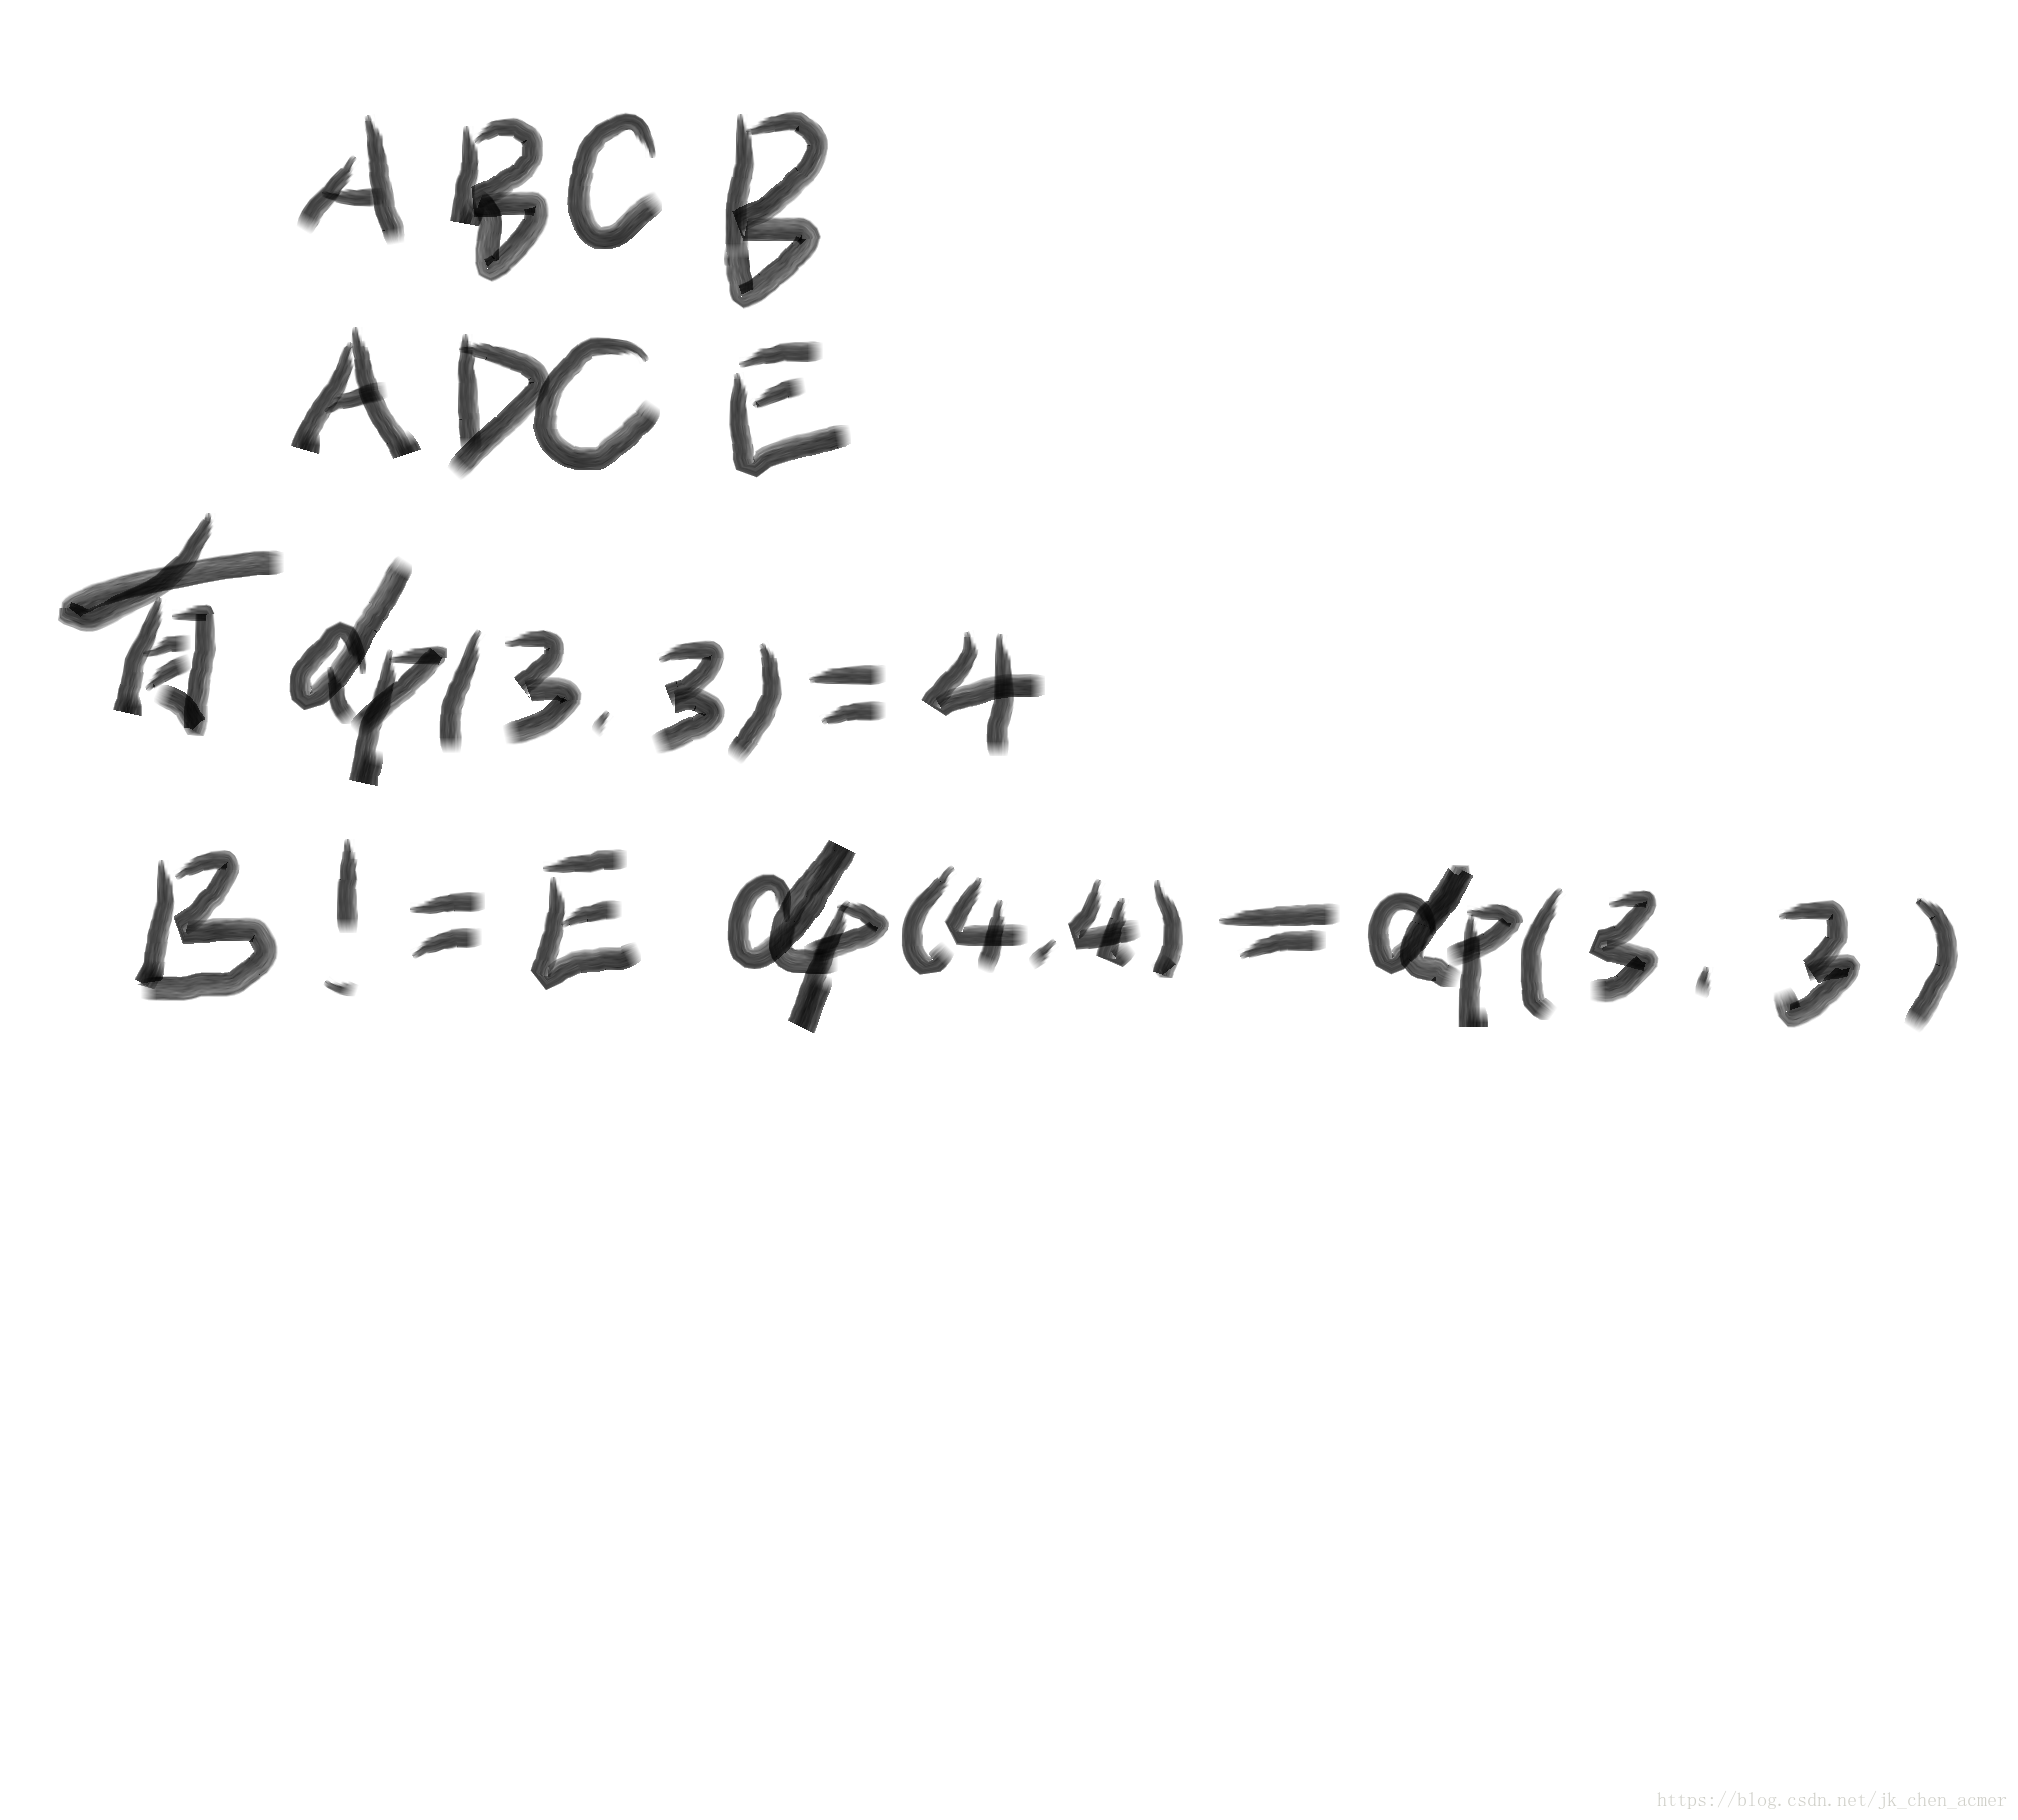 A B C B
A D C E
有 dp(3.3)=4
B != E dp(4.4)=dp(3.3)
https://blog.csdn.net/jk_chen_acmer